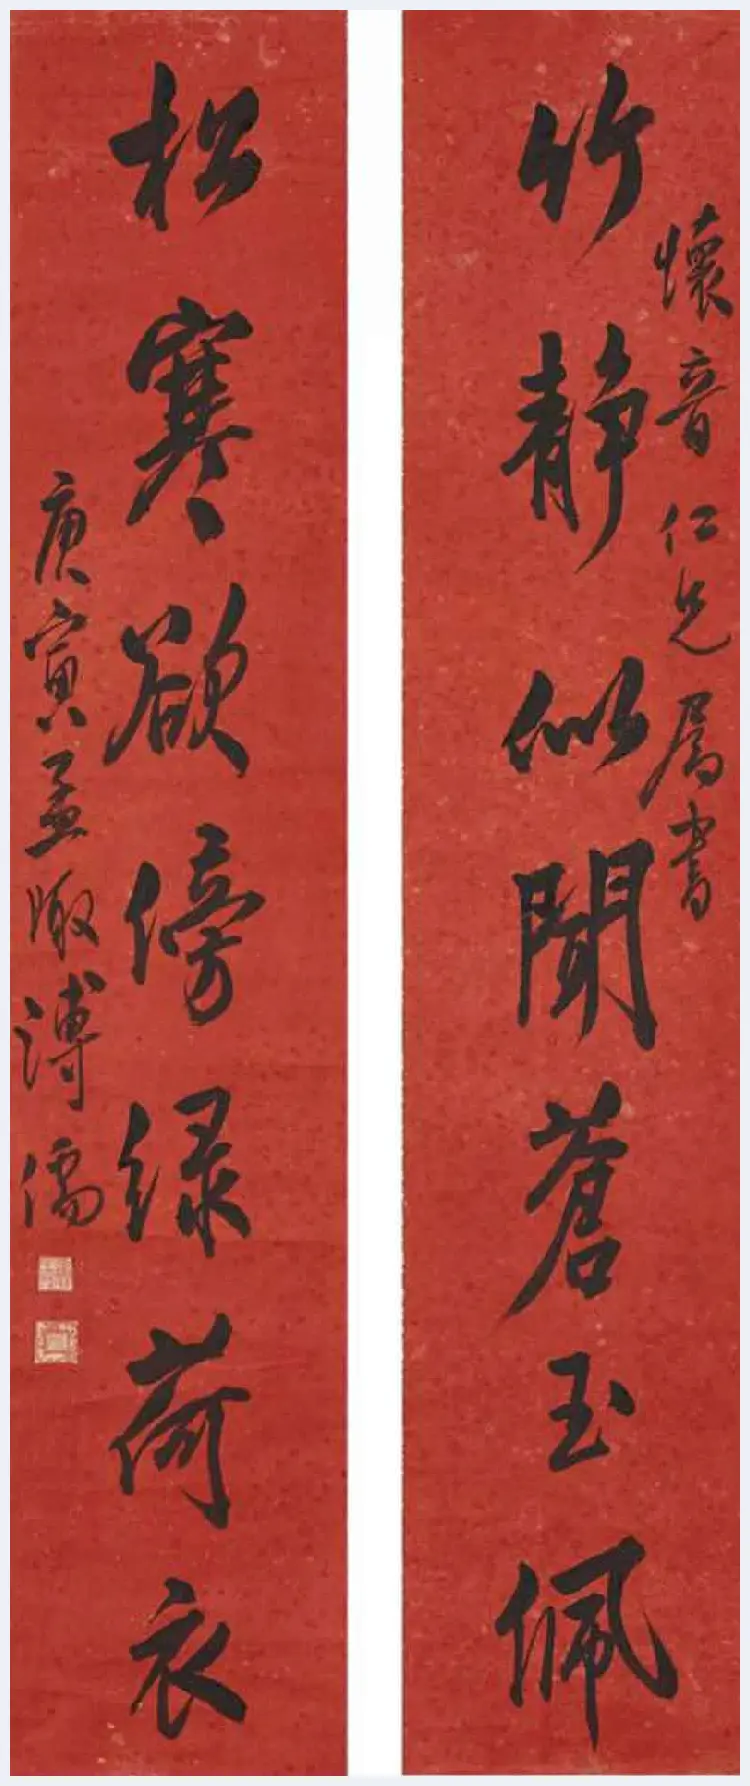 懷音仁兄屬書
竹靜似聞蒼玉佩
松寒欲傍綠荷衣
庚寅孟陬溥儒